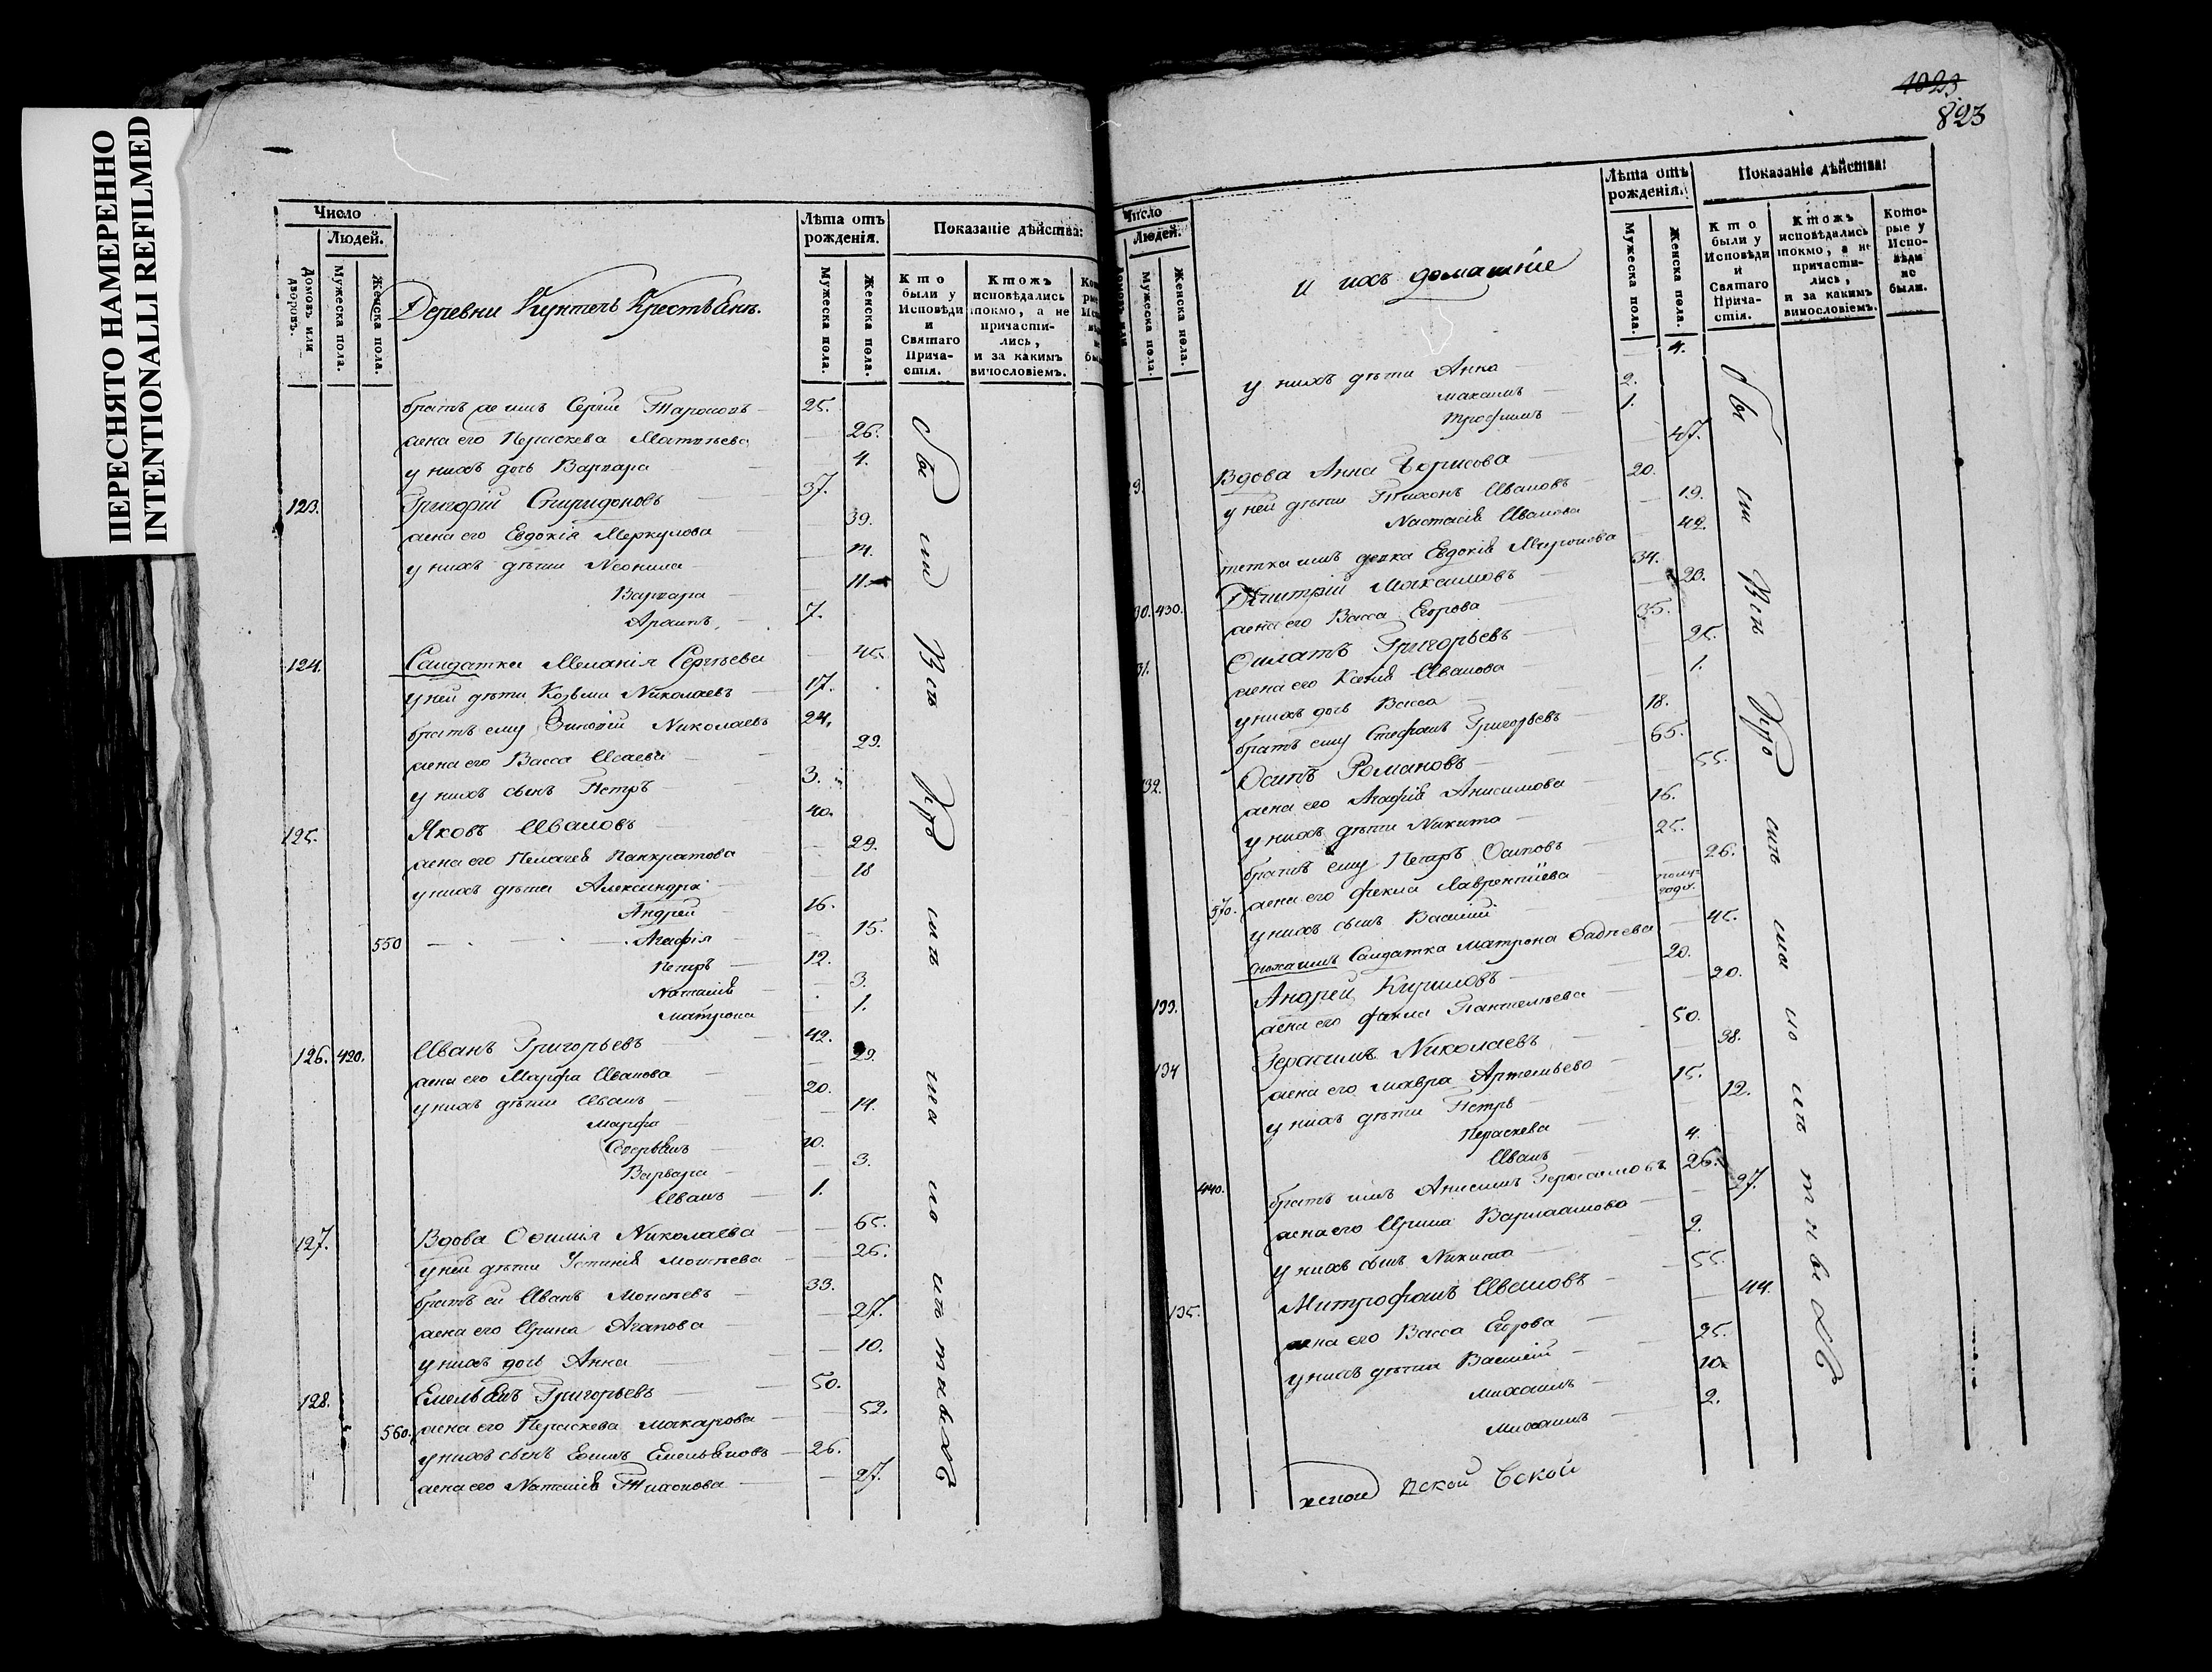 ПЕРЕСНЯТО НАМЕРЕННО
INTENTIONALLI REFILMED
Число
Людей.
Домовъ или дворовъ.
Мужеска пола.
Женска пола.
Деревни Крестьянъ.
Лѣта отъ рожденія.
Мужеска пола.
Женска пола.
Показаніе дѣйства:
Кто были у Исповѣди и Святаго Прича-стія.
Ктожъ исповѣдались токмо, а не причасти-лись, и за какимъ винословіемъ.
братъ Сергій 25.
жена его Параскева 26.
у нихъ дочь Варвара 4.
123. Григорій Спиридоновъ 37.
жена его Евдокія Меркулова 39.
у нихъ дѣти Неонила 14.
Варвара 11.
7.
124. Салдатка Меланія Сергѣева 45.
у ней дѣти Козьма Николаевъ 17.
братъ ему Николаевъ 24.
жена его Васса Исаева 29.
у нихъ сынъ Петръ 3.
125. Яковъ Ивановъ 40.
жена его Панкратова 29.
у нихъ дѣти Александра 18
Андрей 16.
550 Агафія 15.
Петръ 12.
Наталія 3.
Матрона 1.
126. 420. Иванъ Григорьевъ 42.
жена его Марфа Иванова 29.
у нихъ дѣти Иванъ 20.
Марфа 14.
10.
Варвара 3.
Иванъ 1.
127. Вдова Николаева 65.
у ней дѣти Устинія Моисѣева 26.
братъ ей Иванъ Моисѣевъ 33.
жена его Ирина Агапова 27.
у нихъ дочь Анна 10.
128. Емельянъ Григорьевъ 50.
560. жена его Параскева Макарова 52.
у нихъ сынъ Емельяновъ 26.
жена его Наталія Тихонова 27.
1023
823
Число
Людей.
Мужеска пола.
Женска пола.
и ихъ домашніе
Лѣта отъ рожденія.
Мужеска пола.
Женска пола.
Показаніе дѣйства:
Кто были у Исповѣди и Святаго Прича-стія.
Ктожъ исповѣдались токмо, а не причасти-лись, и за какимъ винословіемъ.
Кото-рые у Испо-вѣди не были.
у нихъ дѣти Анна 4.
Максимъ 2.
Трофимъ 1.
Вдова Анна Борисова 47.
у ней дѣти Тихонъ Ивановъ 20.
Настасія Иванова 19.
тетка имъ девка Евдокія Миронова 42.
430. Дмитрій Максимовъ 34.
жена его Васса Егорова 20.
Филатъ Григорьевъ 35.
жена его Ксенія Иванова 25.
у нихъ дочь Васса 1.
братъ ему Стефанъ Григорьевъ 18.
Осипъ Романовъ 65.
жена его Агафія Анисимова 55.
у нихъ дѣти Никита 16.
братъ ему Петръ Осиповъ 25.
570. жена его Фекла Лаврентіева 26.
у нихъ сынъ Василій
Салдатка Матрона 45.
133. Андрей Кириловъ 20.
жена его Фекла Пантелѣева 20.
134 Герасимъ Николаевъ 50.
жена его Мавра Артемьева 38.
у нихъ дѣти Петръ 15.
Параскева 12.
Иванъ 4.
440. братъ имъ Анисимъ Герасимовъ 26.
жена его Ирина Варлаамова 27.
у нихъ сынъ Никита 2.
135. Митрофанъ Ивановъ 55.
жена его Васса Егорова 44.
у нихъ дѣти Василій 25.
Михаилъ 10.
Михаилъ 2.